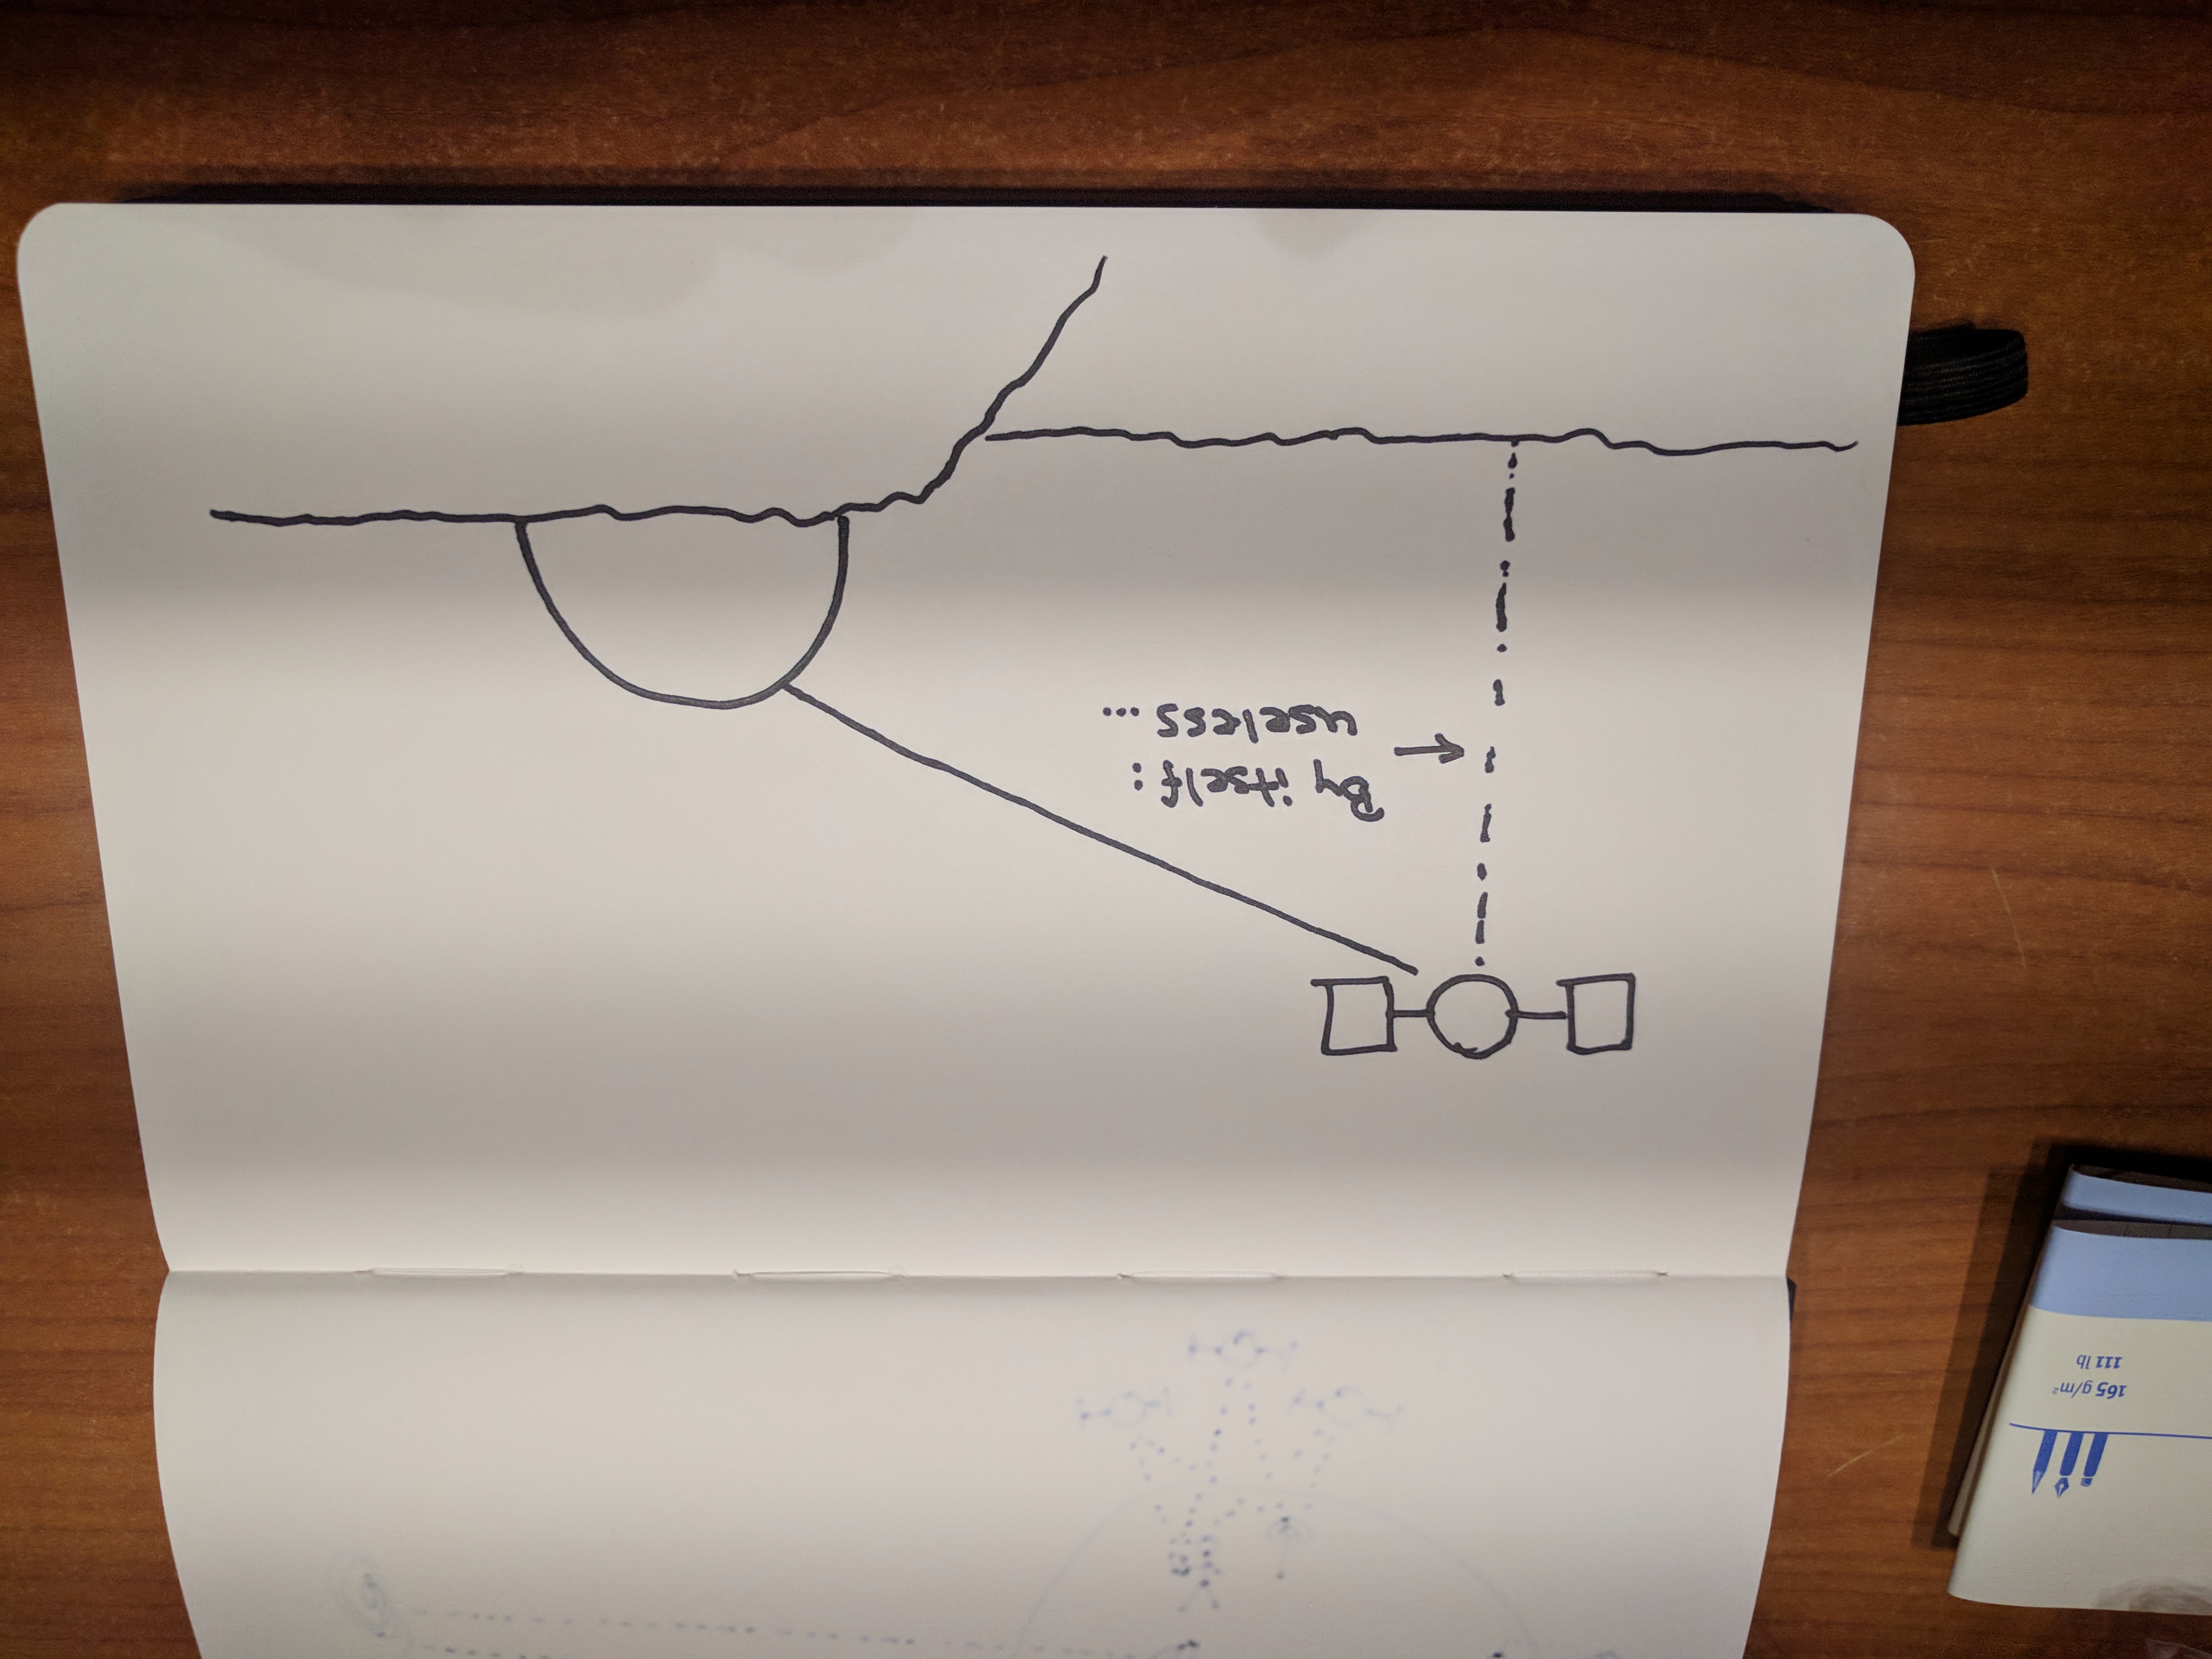 By itself:
useless ...
165 g/m²
111 lb